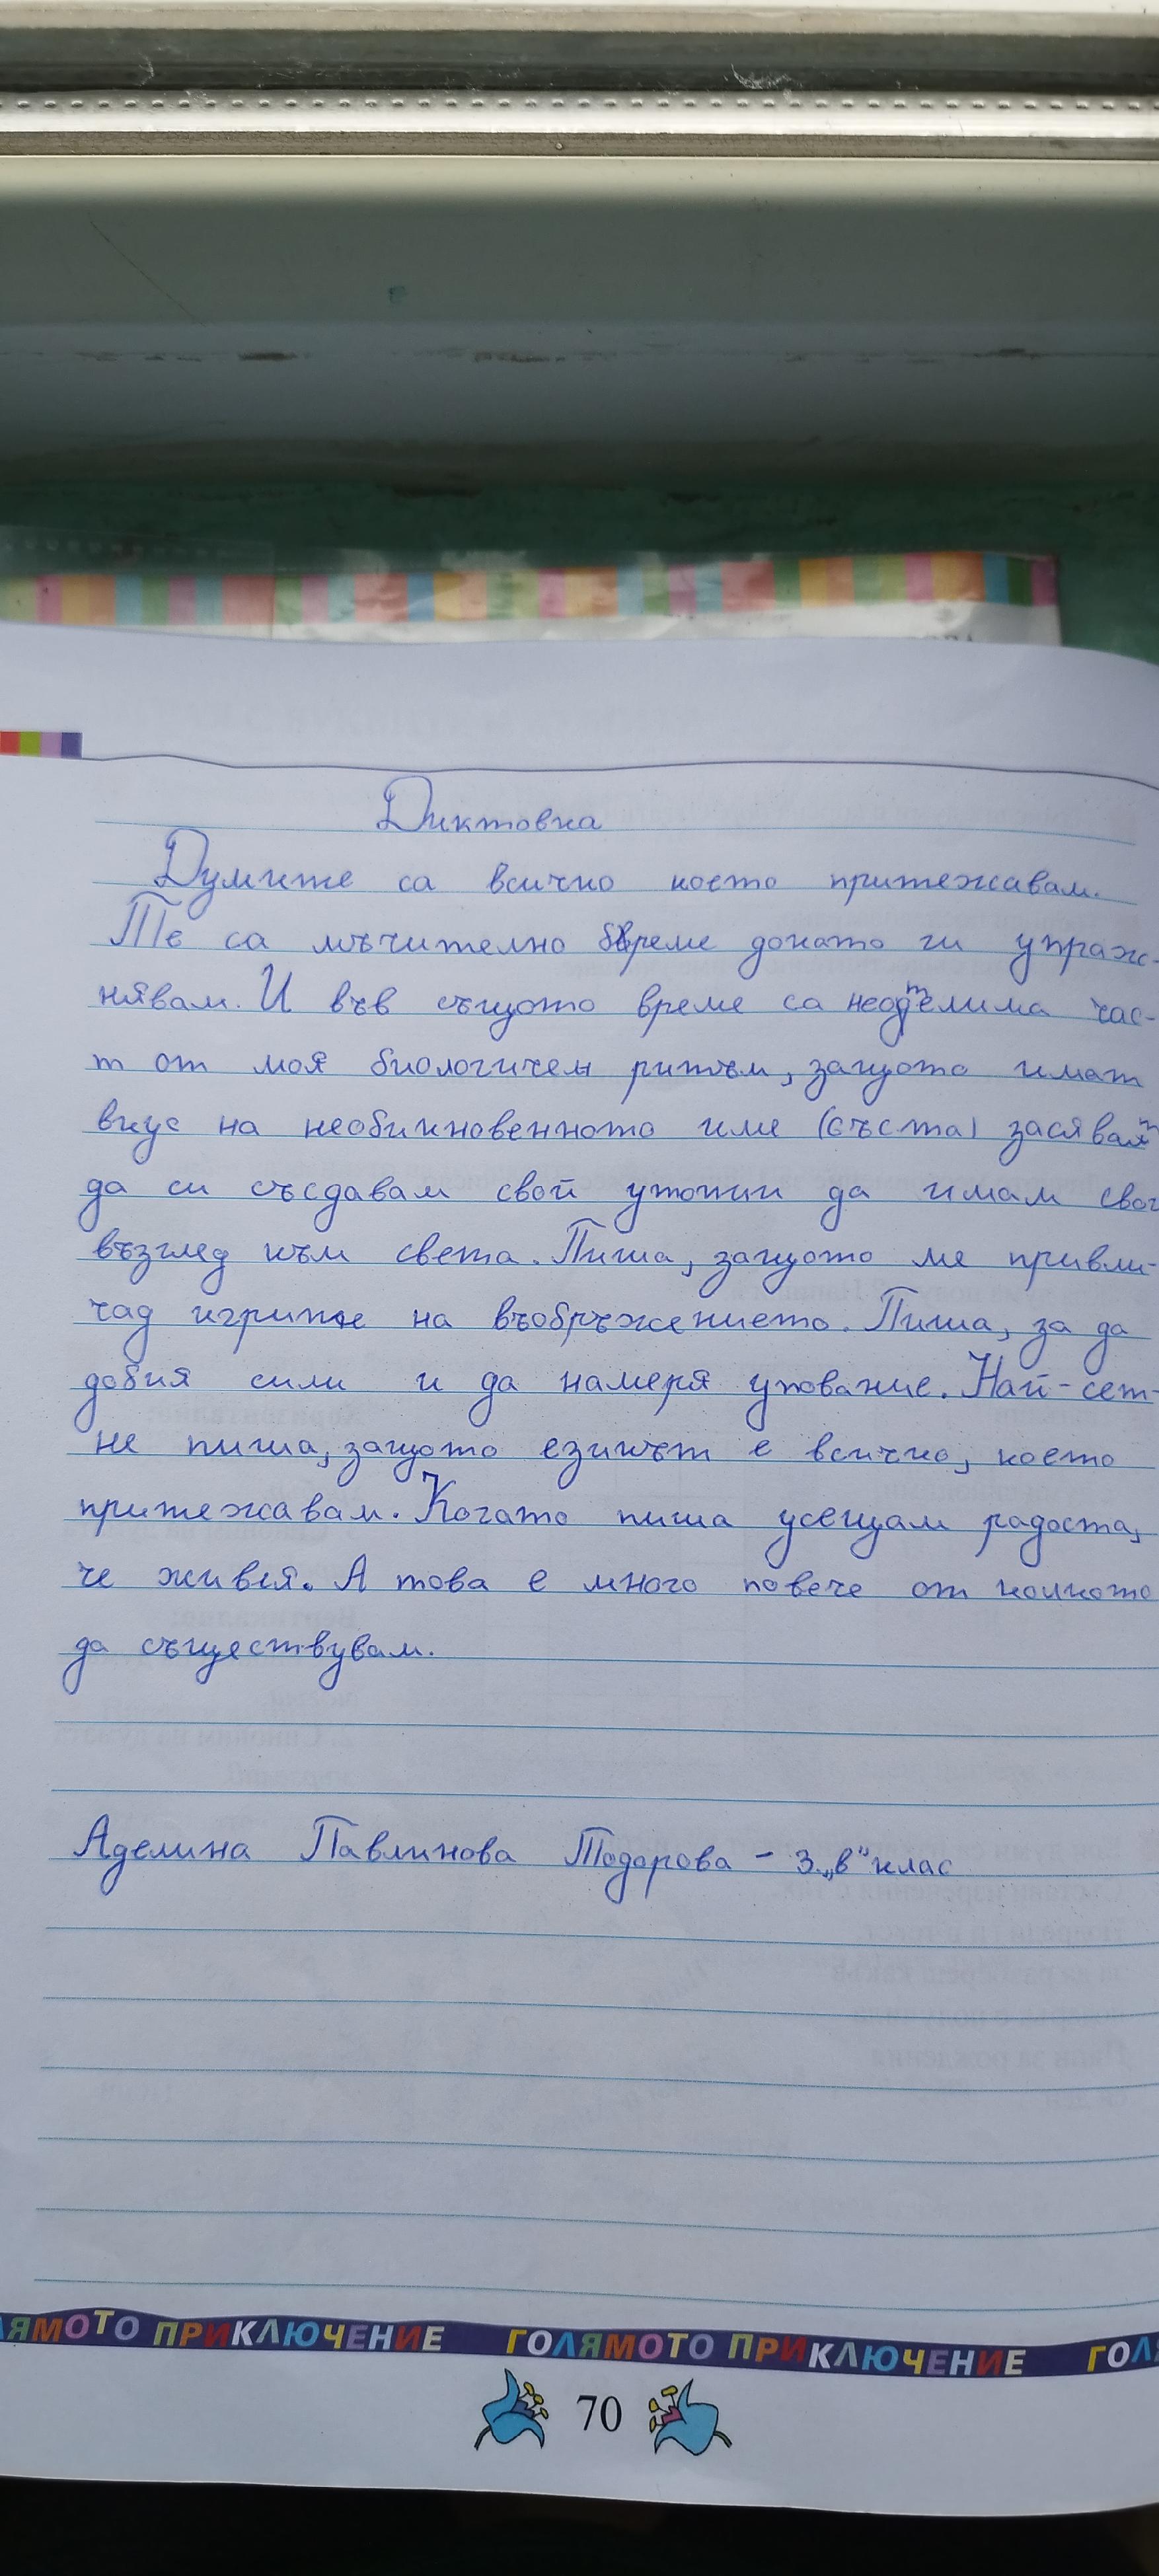 Диктовка
Думите са всичко което притежавам.
Те са мъчително бреме докато ги упраж-
нявам. И във същото време са неотделима час-
т от моя биологичен ритъм, защото имат
вкус на необикновенното име (съста) засяват
да си съсдавам свой утопии да имам
възглед към света. Пиша, защото ме привли-
чад игрите на въобръжението. Пиша, за да
добия сили и да намеря упование. Най-сет-
не пиша, защото езикът е всичко, което
притежавам. Когато пиша усещам радоста,
че живея. А това е много повече от колкото
да съществувам.
Аделина Павлинова Тодорова - 3. „в" клас
ЛЯМОТО ПРИКЛЮЧЕНИЕ ГОЛЯМОТО ПРИКЛЮЧЕНИЕ ГОЛ
70